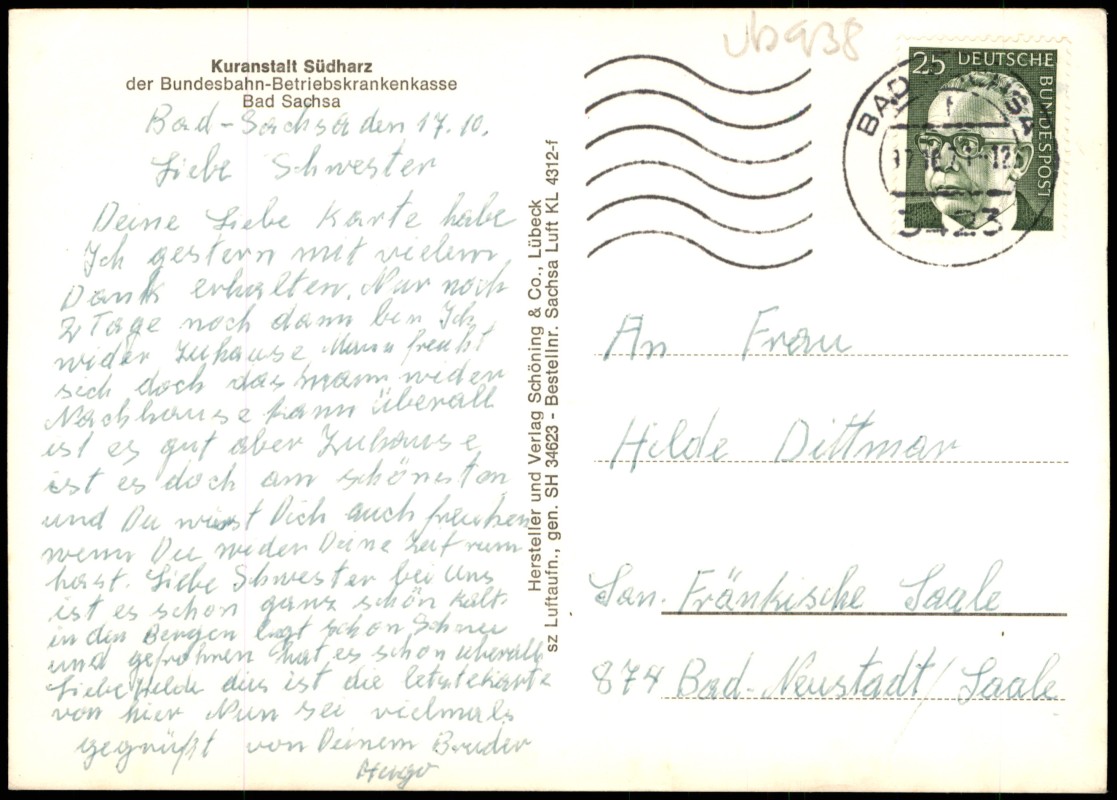 Kuranstalt Südharz
der Bundesbahn-Betriebskrankenkasse
Bad Sachsa
Bad-Sachsa den 17.10.
Liebe Schwester
Deine Liebe Karte habe
Ich gestern mit vielem
Dank erhalten. Nur noch
2 Tage noch dann bin Ich
wider Zuhause. Mann freuht
sich doch das mann wider
Nachhause kann überall
ist es gut aber Zuhause
ist es doch am schönsten
und Du wirst Dich auch freuhen
wenn Du wider Deine Zeit rum
hast. Liebe Schwester bei Uns
ist es schon ganz schön kalt.
in den Bergen liegt schon Schnee
und gefrohren hat es schon überall
Liebe Hilde dies ist die letzte Karte
von hier Nun sei vielmals
gegrüßt von Deinem Bruder
Hugo
Hersteller und Verlag Schöning & Co., Lübeck
sz Luftaufn., gen. SH 34623 - Bestellnr. Sachsa Luft KL 4312-f
25 DEUTSCHE
BUNDESPOST
BAD SACHSA
3423
An Frau
Hilde Dittmar
San. Fränkische Saale
874 Bad-Neustadt/Saale